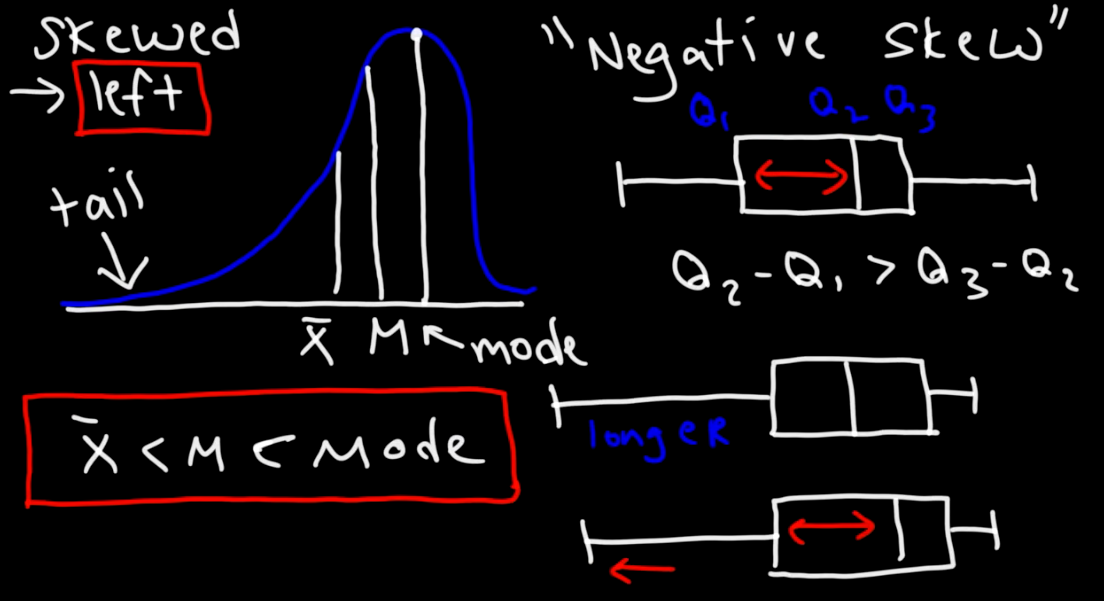 Skewed
→ left
tail
x̄ M ← mode
x̄ < M < Mode
"Negative skew"
Q₁ Q₂ Q₃
Q₂ - Q₁ > Q₃ - Q₂
longeR